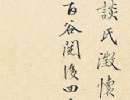 談氏澂懷
百谷閱後四